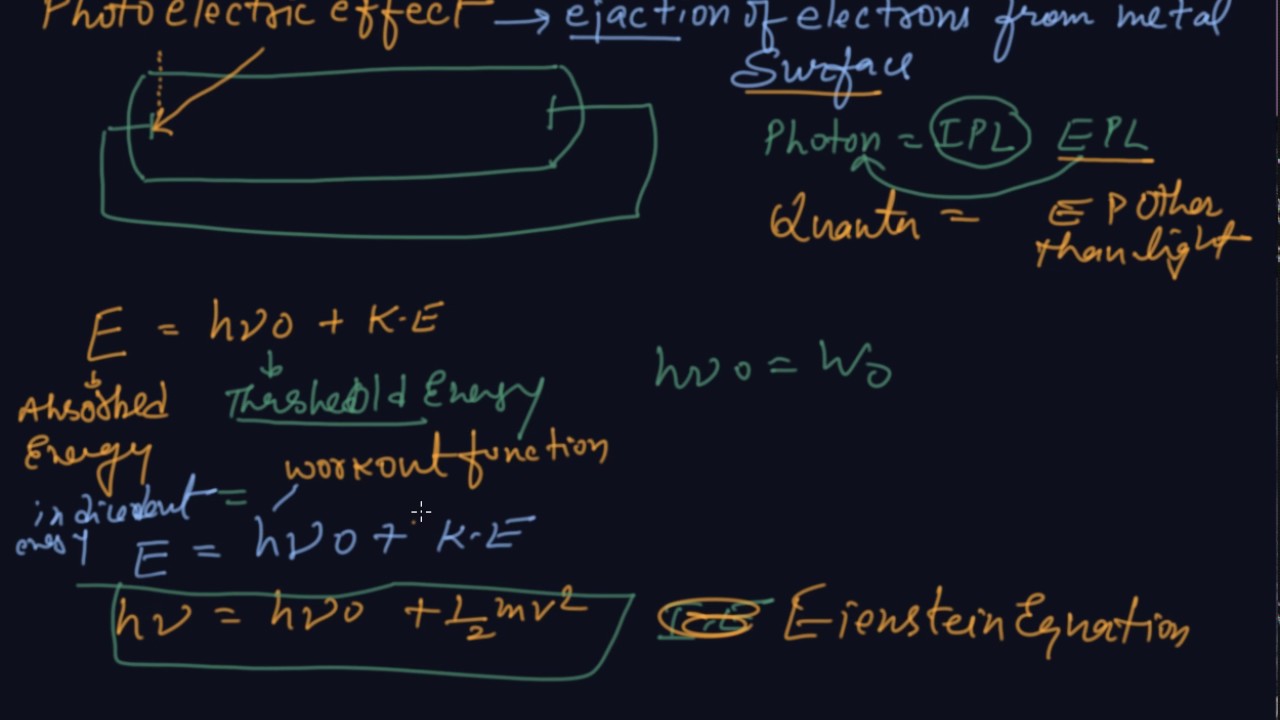 Photoelectric effect → ejaction of electrons from metal
Surface
Photon = IPL EPL
Quanta = E P Other
than light
E = hν0 + K·E
hν0 = W0
Absorbed
Energy
Threshold Energy
workout function
indicedent =
energy
E = hν0 + K·E
hν = hν0 + 1/2 mv²
Eienstein Equation